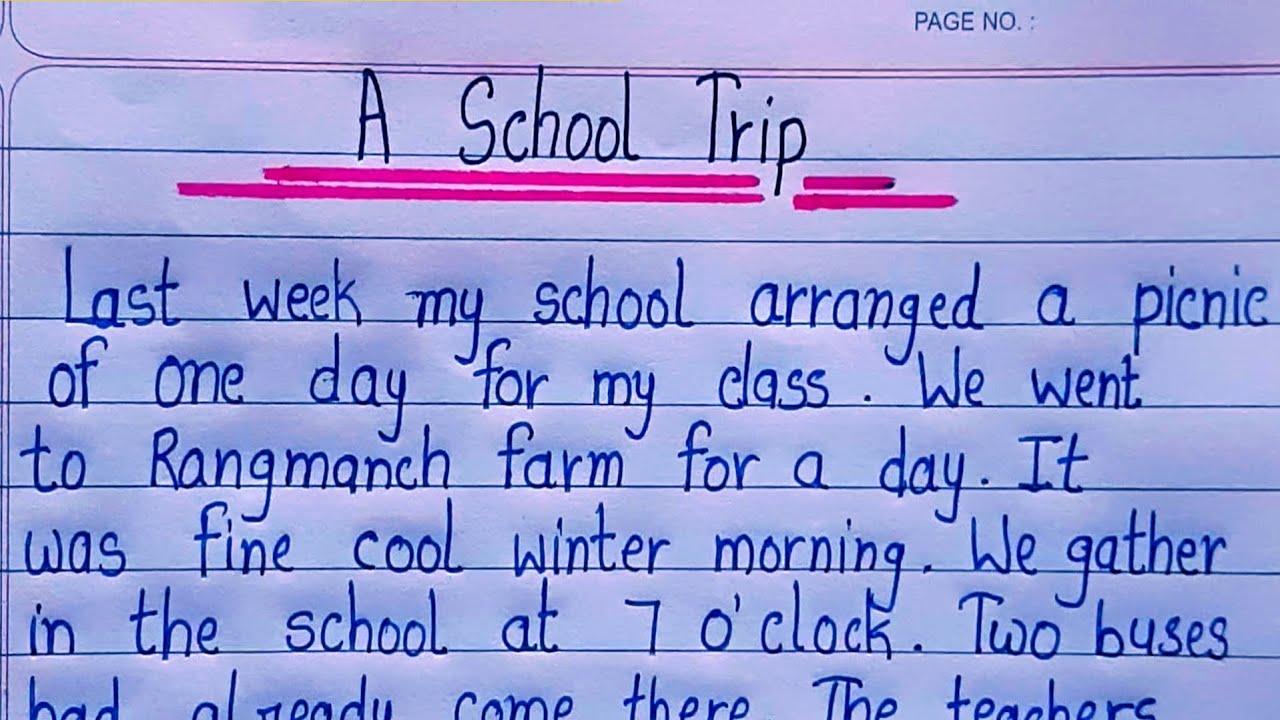 PAGE NO. :
A School Trip
Last week my school arranged a picnic
of one day for my class. We went
to Rangmanch farm for a day. It
was fine cool winter morning. We gather
in the school at 7 o'clock. Two buses
had already come there. The teachers